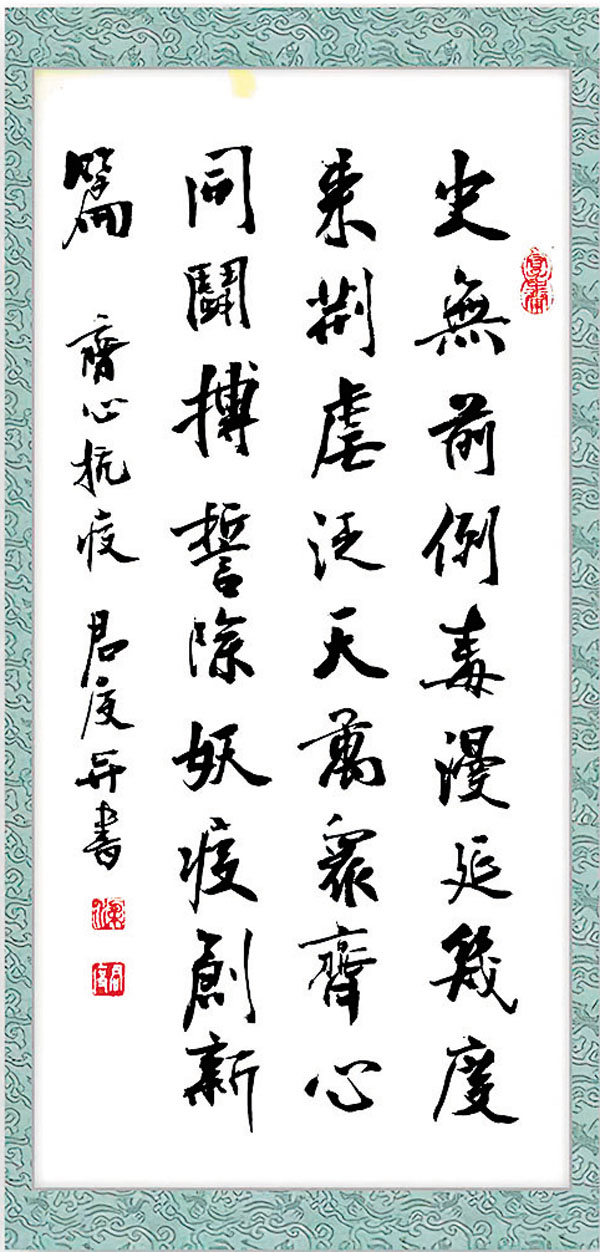 史無前例毒漫延幾度
来荆虐泛天萬眾齊心
同鬪搏誓除妖疫創新
篇 齊心抗疫 君度并書